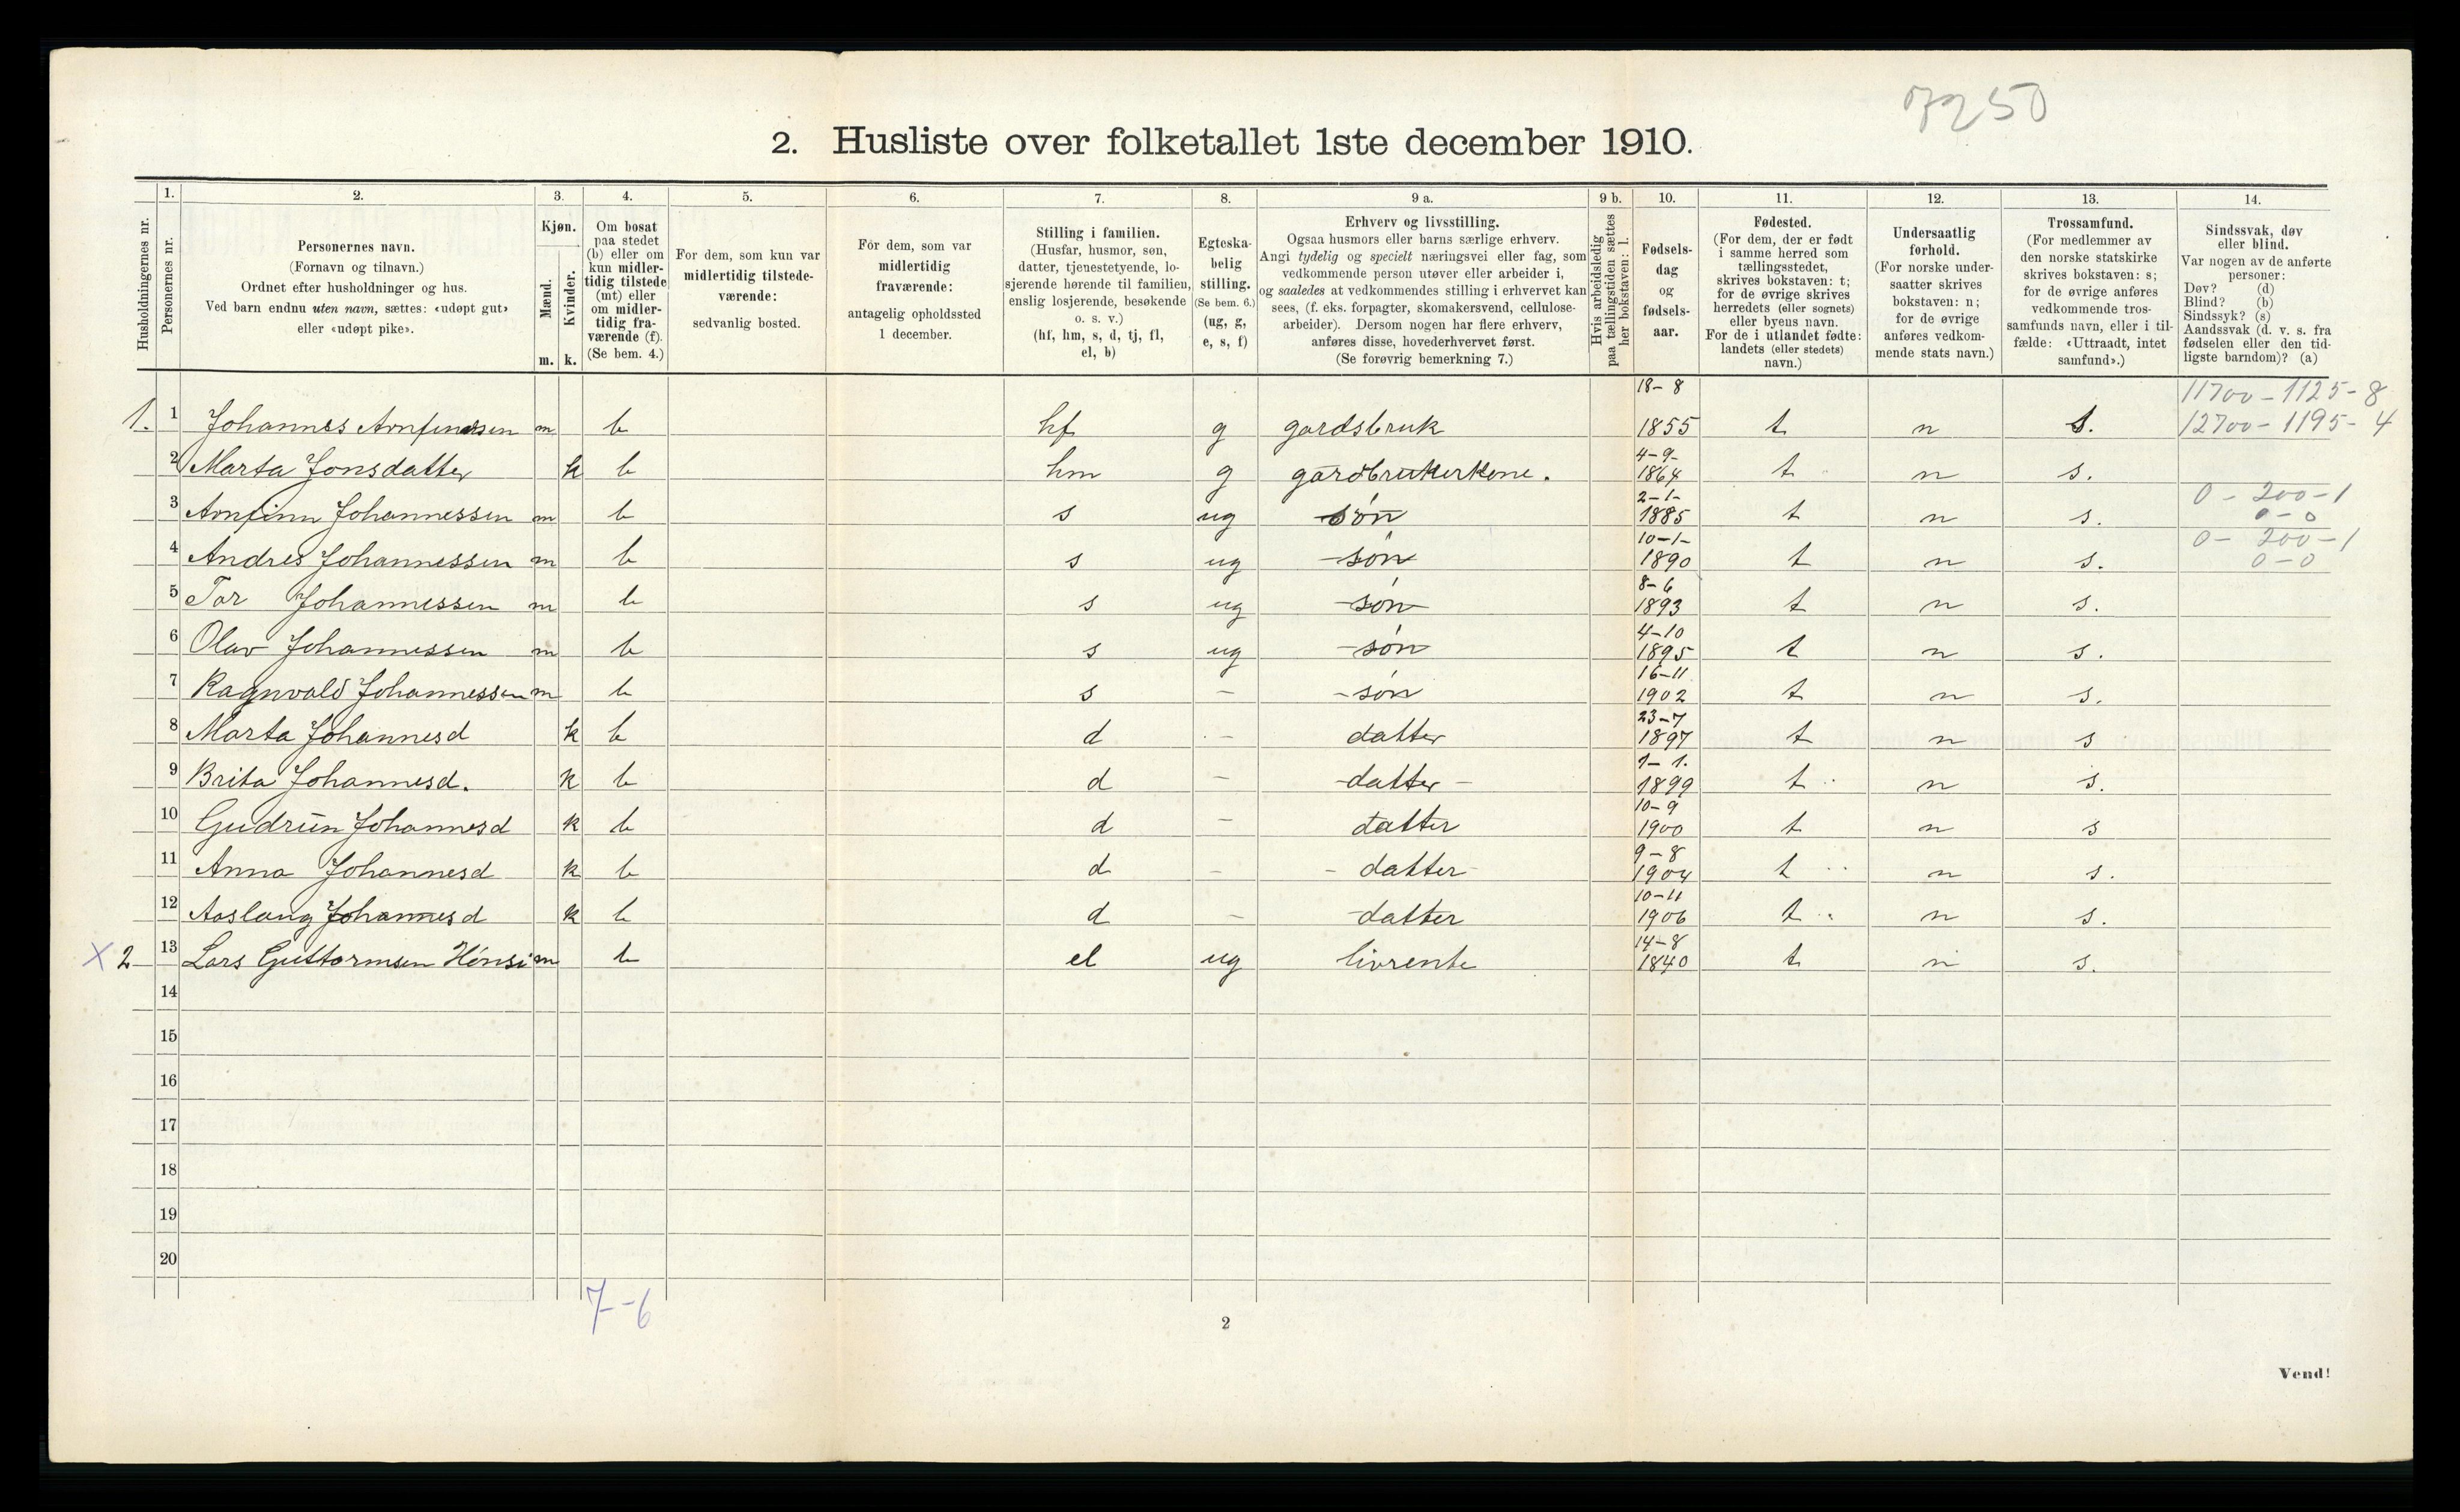 7250
2. Husliste over folketallet 1ste december 1910.
Husholdningernes nr.
1.
Personernes nr.
2.
Personernes navn.
(Fornavn og tilnavn.)
Ordnet efter husholdninger og hus.
Ved barn endnu uten navn, sættes: «udøpt gut»
eller «udøpt pike».
3.
Kjøn.
Mænd.
Kvinder.
m. k.
4.
Om bosat
paa stedet
(b) eller om
kun midler-
tidig tilstede
(mt) eller
om midler-
tidig fra-
værende (f).
(Se bem. 4.)
5.
For dem, som kun var
midlertidig tilstede-
værende:
sedvanlig bosted.
6.
For dem, som var
midlertidig
fraværende:
antagelig opholdssted
1 december.
7.
Stilling i familien.
(Husfar, husmor, søn,
datter, tjenestetyende, lo-
sjerende hørende til familien,
enslig losjerende, besøkende
o. s. v.)
(hf, hm, s, d, tj, fl,
el, b)
8.
Egteska-
belig
stilling.
(Se bem. 6.)
(ug, g,
e, s, f)
9 a.
Erhverv og livsstilling.
Ogsaa husmors eller barns særlige erhverv.
Angi tydelig og specielt næringsvei eller fag, som
vedkommende person utøver eller arbeider i,
og saaledes at vedkommendes stilling i erhvervet kan
sees, (f. eks. forpagter, skomakersvend, cellulose-
arbeider). Dersom nogen har flere erhverv,
anføres disse, hovederhvervet først.
(Se forøvrig bemerkning 7.)
9 b.
Hvis arbeidsledig
paa tællingstiden sættes
her bokstaven: l.
10.
Fødsels-
dag
og
fødsels-
aar.
11.
Fødested.
(For dem, der er født
i samme herred som
tællingsstedet,
skrives bokstaven: t;
for de øvrige skrives
herredets (eller sognets)
eller byens navn.
For de i utlandet fødte:
landets (eller stedets)
navn.)
12.
Undersaatlig
forhold.
(For norske under-
saatter skrives
bokstaven: n;
for de øvrige
anføres vedkom-
mende stats navn.)
13.
Trossamfund.
(For medlemmer av
den norske statskirke
skrives bokstaven: s;
for de øvrige anføres
vedkommende tros-
samfunds navn, eller i til-
fælde: «Uttraadt, intet
samfund».)
14.
Sindssvak, døv
eller blind.
Var nogen av de anførte
personer:
Døv? (d)
Blind? (b)
Sindssyk? (s)
Aandssvak (d. v. s. fra
fødselen eller den tid-
ligste barndom)? (a)
1. 1 Johannes Arnfinnssen m b hf g gardsbruk 18-8 1855 t n s. 11700-1125-8 12700-1195-4
2 Marta Jonsdatter k b hm g gardbrukerkone. 4-9- 1864 t n s.
3 Arnfinn Johannessen m b s ug søn 2-1- 1885 t n s. 0-200-1 0-0
4 Andres Johannessen m b s ug søn 10-1- 1890 t n s. 0-200-1 0-0
5 Tor Johannessen m b s ug søn 8-6 1893 t n s.
6 Olav Johannessen m b s ug søn 4-10 1895 t n s.
7 Ragnvald Johannessen m b s - søn 16-11 1902 t n s.
8 Marta Johannesd k b d - datter 23-7 1897 t n s
9 Brita Johannesd. k b d - datter - 1-1. 1899 t n s.
10 Gudrun Johannesd k b d - datter 10-9 1900 t n s
11 Anna Johannesd k b d - - datter - 9-8 1904 t n s.
12 Aaslaug Johannesd k b d - datter 10-11 1906 t n s.
X 2 13 Lars Guttormsen Hönsi m b el ug livrente 14-8 1840 t n s.
14
15
16
17
18
19
20
7-6
2
Vend!